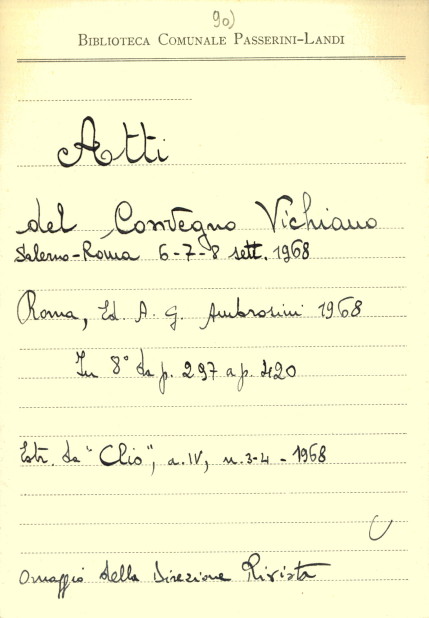 90)
BIBLIOTECA COMUNALE PASSERINI-LANDI
Atti
del Convegno Vichiano
Salerno-Roma 6-7-8 sett. 1968
Roma, Ed. A. G. Ambrosini 1968
In 8° da p. 297 a p. 420
Estr. da "Clio", a. IV, n. 3-4 - 1968
C
Omaggio della Direzione Rivista